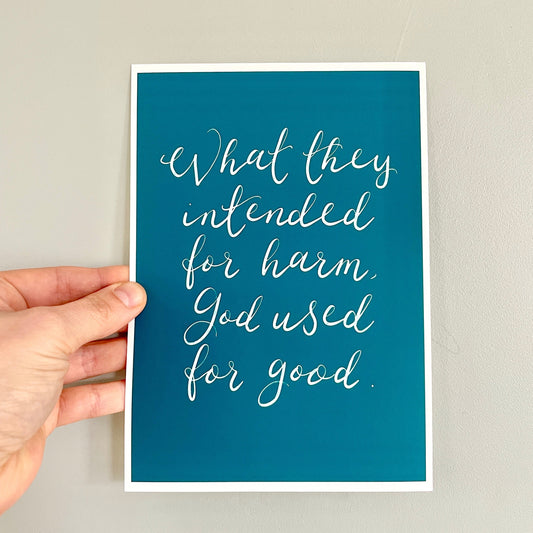 What they
intended
for harm,
God used
for good.